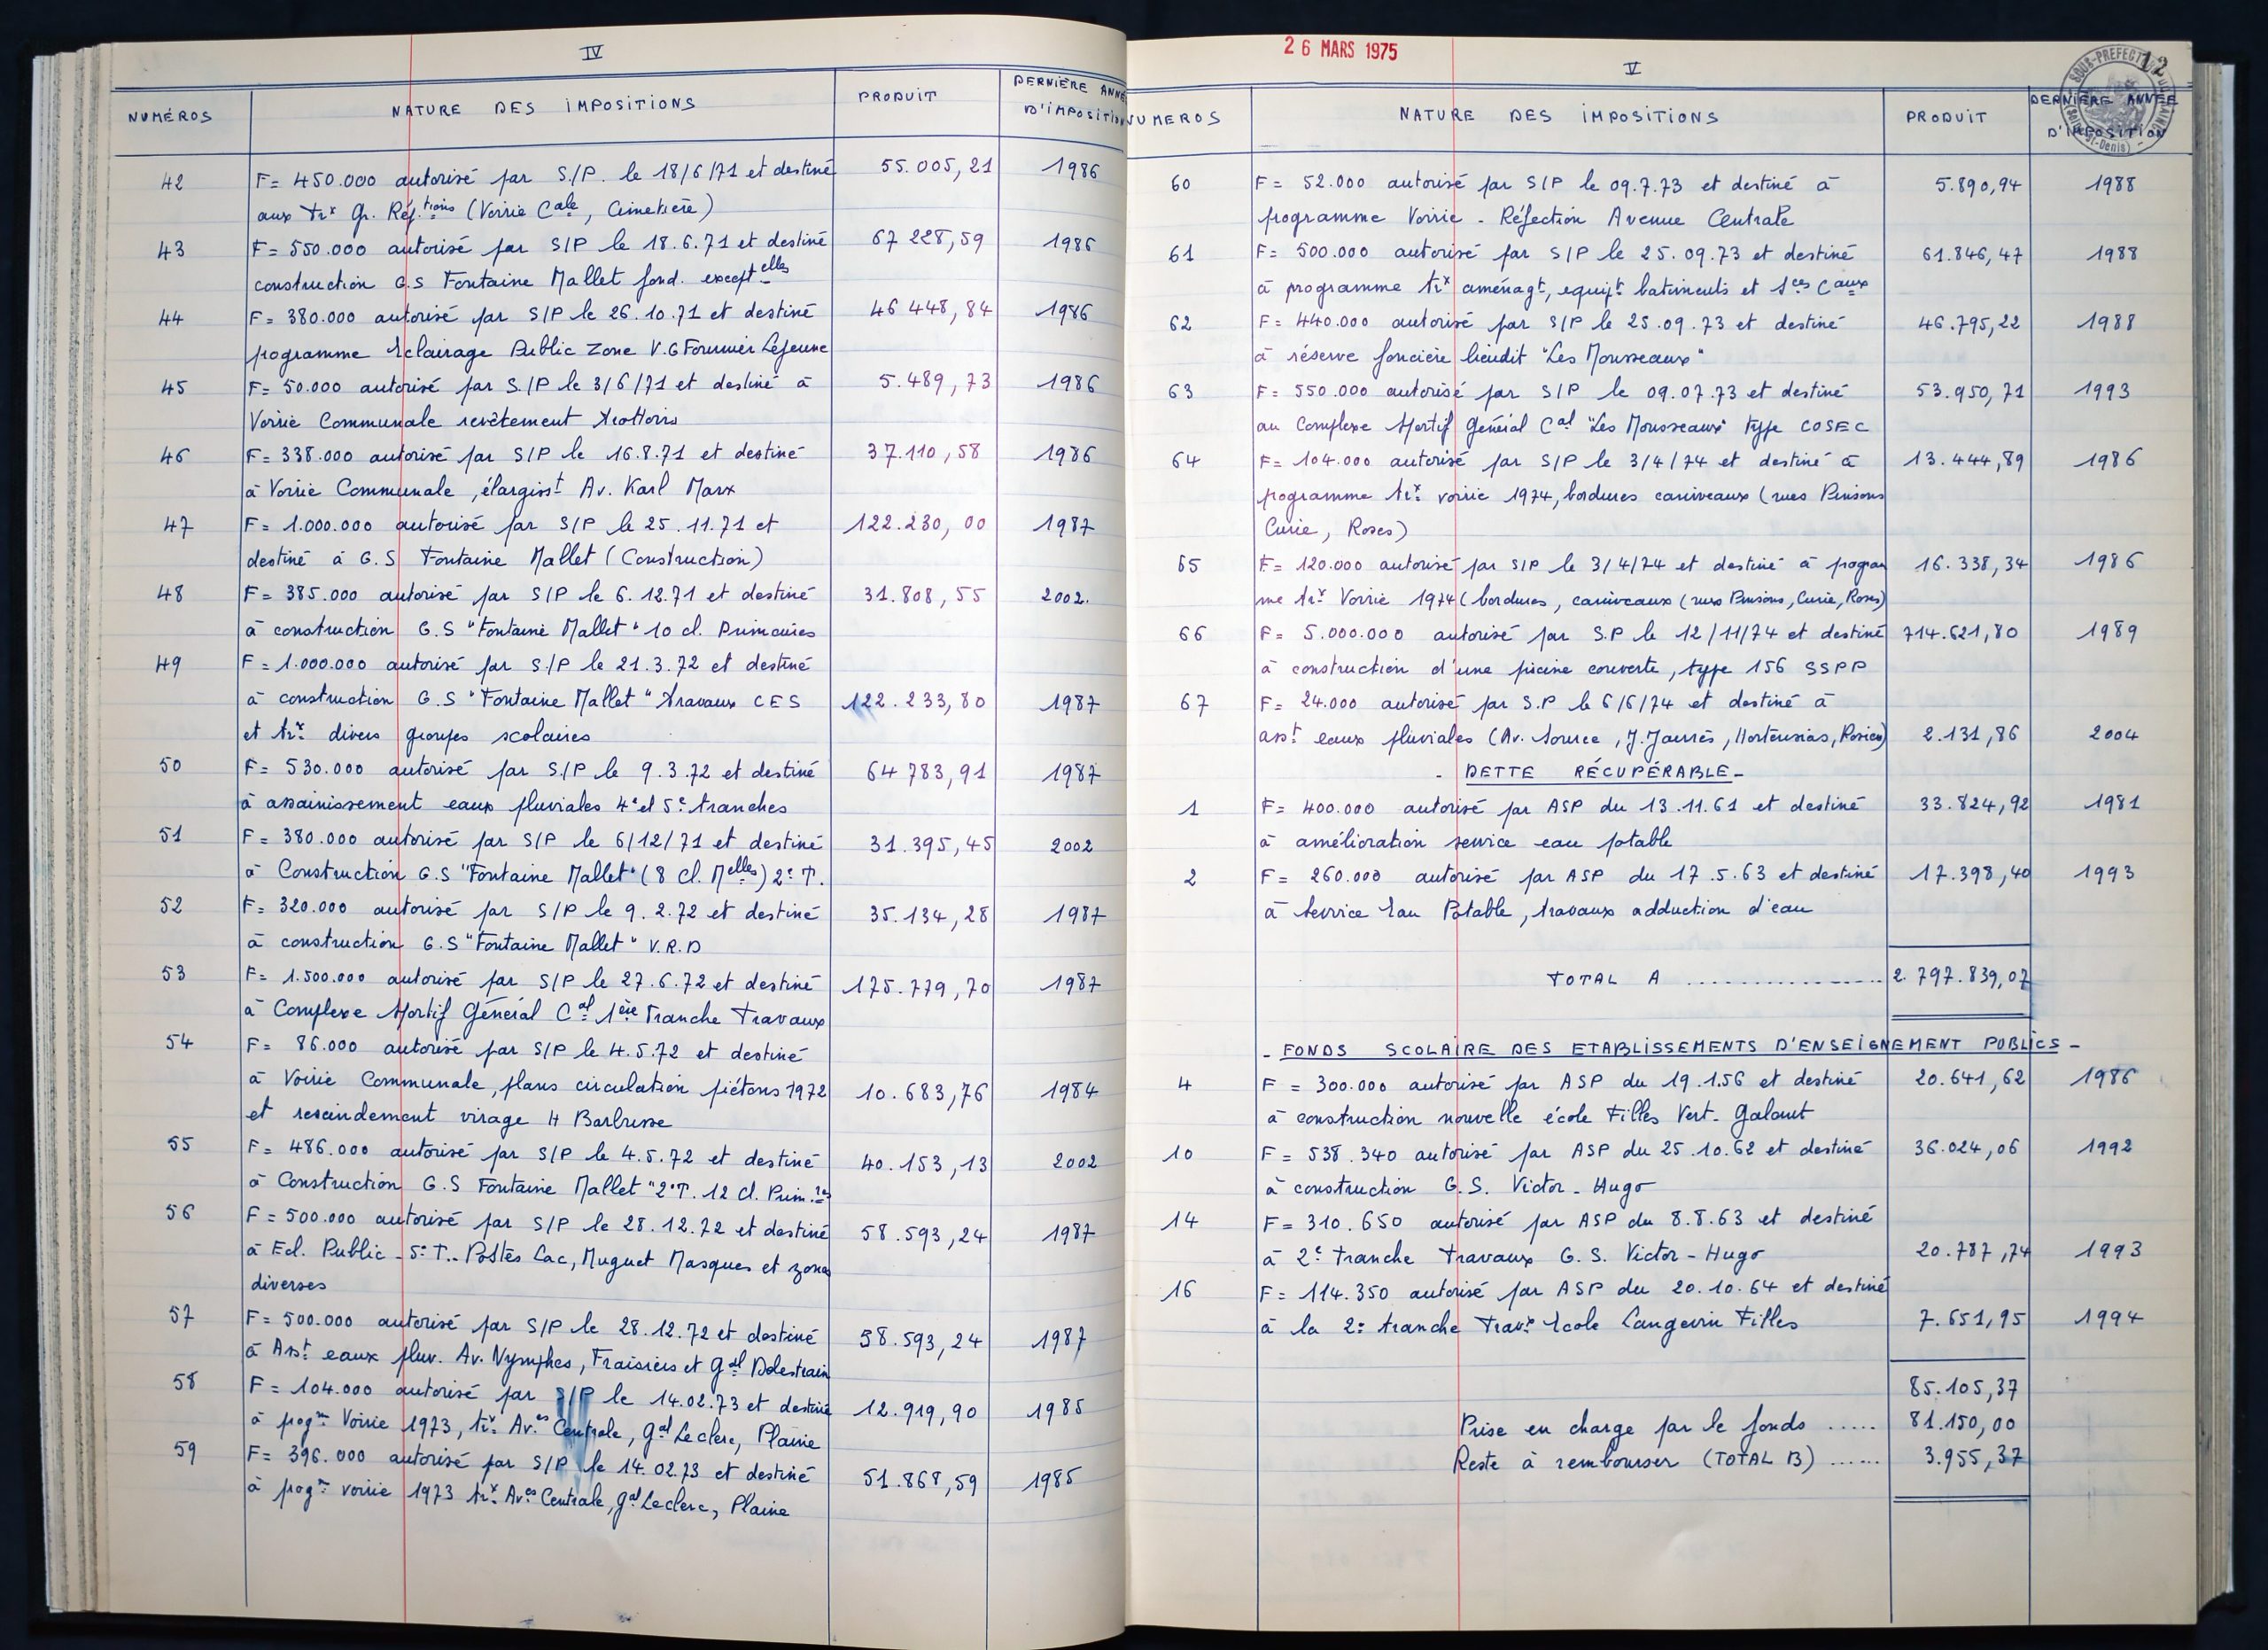 IV
NUMÉROS NATURE DES IMPOSITIONS PRODUIT DERNIÈRE ANNÉE
D'IMPOSITION
42 F= 450.000 autorisé par S/P. le 18/6/71 et destiné 55.005,21 1986
aux trx Gr. Réf.tions (Voirie Cale, Cimetière)
43 F= 550.000 autorisé par S/P le 18.6.71 et destiné 67 228,59 1986
construction G.S Fontaine Mallet fond. exceptelles
44 F= 380.000 autorisé par S/P le 26.10.71 et destiné 46 448,84 1986
programme Eclairage Public Zone V.G Fournier Lejeune
45 F= 50.000 autorisé par S/P le 3/6/71 et destiné à 5.489,73 1986
Voirie Communale revêtement trottoirs
46 F= 338.000 autorisé par S/P le 16.8.71 et destiné 37.110,58 1986
à Voirie Communale, élargisst Av. Karl Marx
47 F= 1.000.000 autorisé par S/P le 25.11.71 et 122.230,00 1987
destiné à G.S Fontaine Mallet (Construction)
48 F= 385.000 autorisé par S/P le 6.12.71 et destiné 31.808,55 2002.
à construction G.S "Fontaine Mallet" 10 cl. Primaires
49 F= 1.000.000 autorisé par S/P le 21.3.72 et destiné
à construction G.S "Fontaine Mallet" travaux CES 122.233,80 1987
et trx divers groupes scolaires
50 F= 530.000 autorisé par S/P le 9.3.72 et destiné 64 783,91 1987
à assainissement eaux pluviales 4e et 5e tranches
51 F= 380.000 autorisé par S/P le 6/12/71 et destiné 31.395,45 2002
à Construction G.S "Fontaine Mallet" (8 cl. Melles) 2e T.
52 F= 320.000 autorisé par S/P le 9.2.72 et destiné 35.134,28 1987
à construction G.S "Fontaine Mallet" V.R.D
53 F= 1.500.000 autorisé par S/P le 27.6.72 et destiné 175.779,70 1987
à Complexe Sportif Général Cal 1ère Tranche Travaux
54 F= 86.000 autorisé par S/P le 4.5.72 et destiné
à Voirie Communale, plans circulation piétons 1972 10.683,76 1984
et rescindement virage H Barbusse
55 F= 486.000 autorisé par S/P le 4.5.72 et destiné 40.153,13 2002
à Construction G.S Fontaine Mallet "2eT. 12 cl. Prim.res
56 F= 500.000 autorisé par S/P le 28.12.72 et destiné 58.593,24 1987
à Ecl. Public - 5e T.. Postes Lac, Muguet Masques et zones
diverses
57 F= 500.000 autorisé par S/P le 28.12.72 et destiné 58.593,24 1987
à Asst eaux pluv. Av. Nymphes, Fraisiers et Gal Delestrain
58 F= 104.000 autorisé par S/P le 14.02.73 et destiné 12.919,90 1985
à progm Voirie 1973, trx Aves Centrale, Gal Leclerc, Plaine
59 F= 396.000 autorisé par S/P le 14.02.73 et destiné 51.868,59 1985
à progm voirie 1973 trx Aves Centrale, Gal Leclerc, Plaine
26 MARS 1975
V
12
SOUS-PREFECTURE
NUMEROS NATURE DES IMPOSITIONS PRODUIT DERNIÈRE ANNÉE
D'IMPOSITION
60 F= 52.000 autorisé par S/P le 09.7.73 et destiné à 5.890,94 1988
programme Voirie - Réfection Avenue Centrale
61 F= 500.000 autorisé par S/P le 25.09.73 et destiné 61.846,47 1988
à programme trx aménagt, equipt batiments et sces Caux
62 F= 440.000 autorisé par S/P le 25.09.73 et destiné 46.795,22 1988
à réserve foncière lieudit "Les Mousseaux"
63 F= 550.000 autorisé par S/P le 09.07.73 et destiné 53.950,71 1993
au Complexe Sportif Général Cal "Les Mousseaux" type COSEC
64 F= 104.000 autorisé par S/P le 3/4/74 et destiné à 13.444,89 1986
programme trx voirie 1974, bordures caniveaux (rues Pinsons
Curie, Roses)
65 F= 120.000 autorisé par S/P le 3/4/74 et destiné à program 16.338,34 1986
me trx Voirie 1974 (bordures, caniveaux (rues Pinsons, Curie, Roses)
66 F= 5.000.000 autorisé par S.P le 12/11/74 et destiné 714.621,80 1989
à construction d'une piscine couverte, type 156 SSPP
67 F= 24.000 autorisé par S.P le 6/6/74 et destiné à
asst eaux pluviales (Av. Source, J. Jaurès, Hortensias, Rosiers) 2.131,86 2004
- DETTE RÉCUPÉRABLE -
1 F= 400.000 autorisé par ASP du 13.11.61 et destiné 33.824,92 1981
à amélioration service eau potable
2 F= 260.000 autorisé par ASP du 17.5.63 et destiné 17.398,40 1993
à Service Eau Potable, travaux adduction d'eau
TOTAL A ................ 2.797.839,07
- FONDS SCOLAIRE DES ETABLISSEMENTS D'ENSEIGNEMENT PUBLICS -
4 F= 300.000 autorisé par ASP du 19.1.56 et destiné 20.641,62 1986
à construction nouvelle école Filles Vert-Galant
10 F= 538.340 autorisé par ASP du 25.10.62 et destiné 36.024,06 1992
à construction G.S. Victor-Hugo
14 F= 310.650 autorisé par ASP du 8.8.63 et destiné
à 2e tranche Travaux G.S. Victor-Hugo 20.787,74 1993
16 F= 114.350 autorisé par ASP du 20.10.64 et destiné
à la 2e tranche Travx Ecole Langevin Filles 7.651,95 1994
85.105,37
Prise en charge par le fonds ..... 81.150,00
Reste à rembourser (TOTAL B) ...... 3.955,37